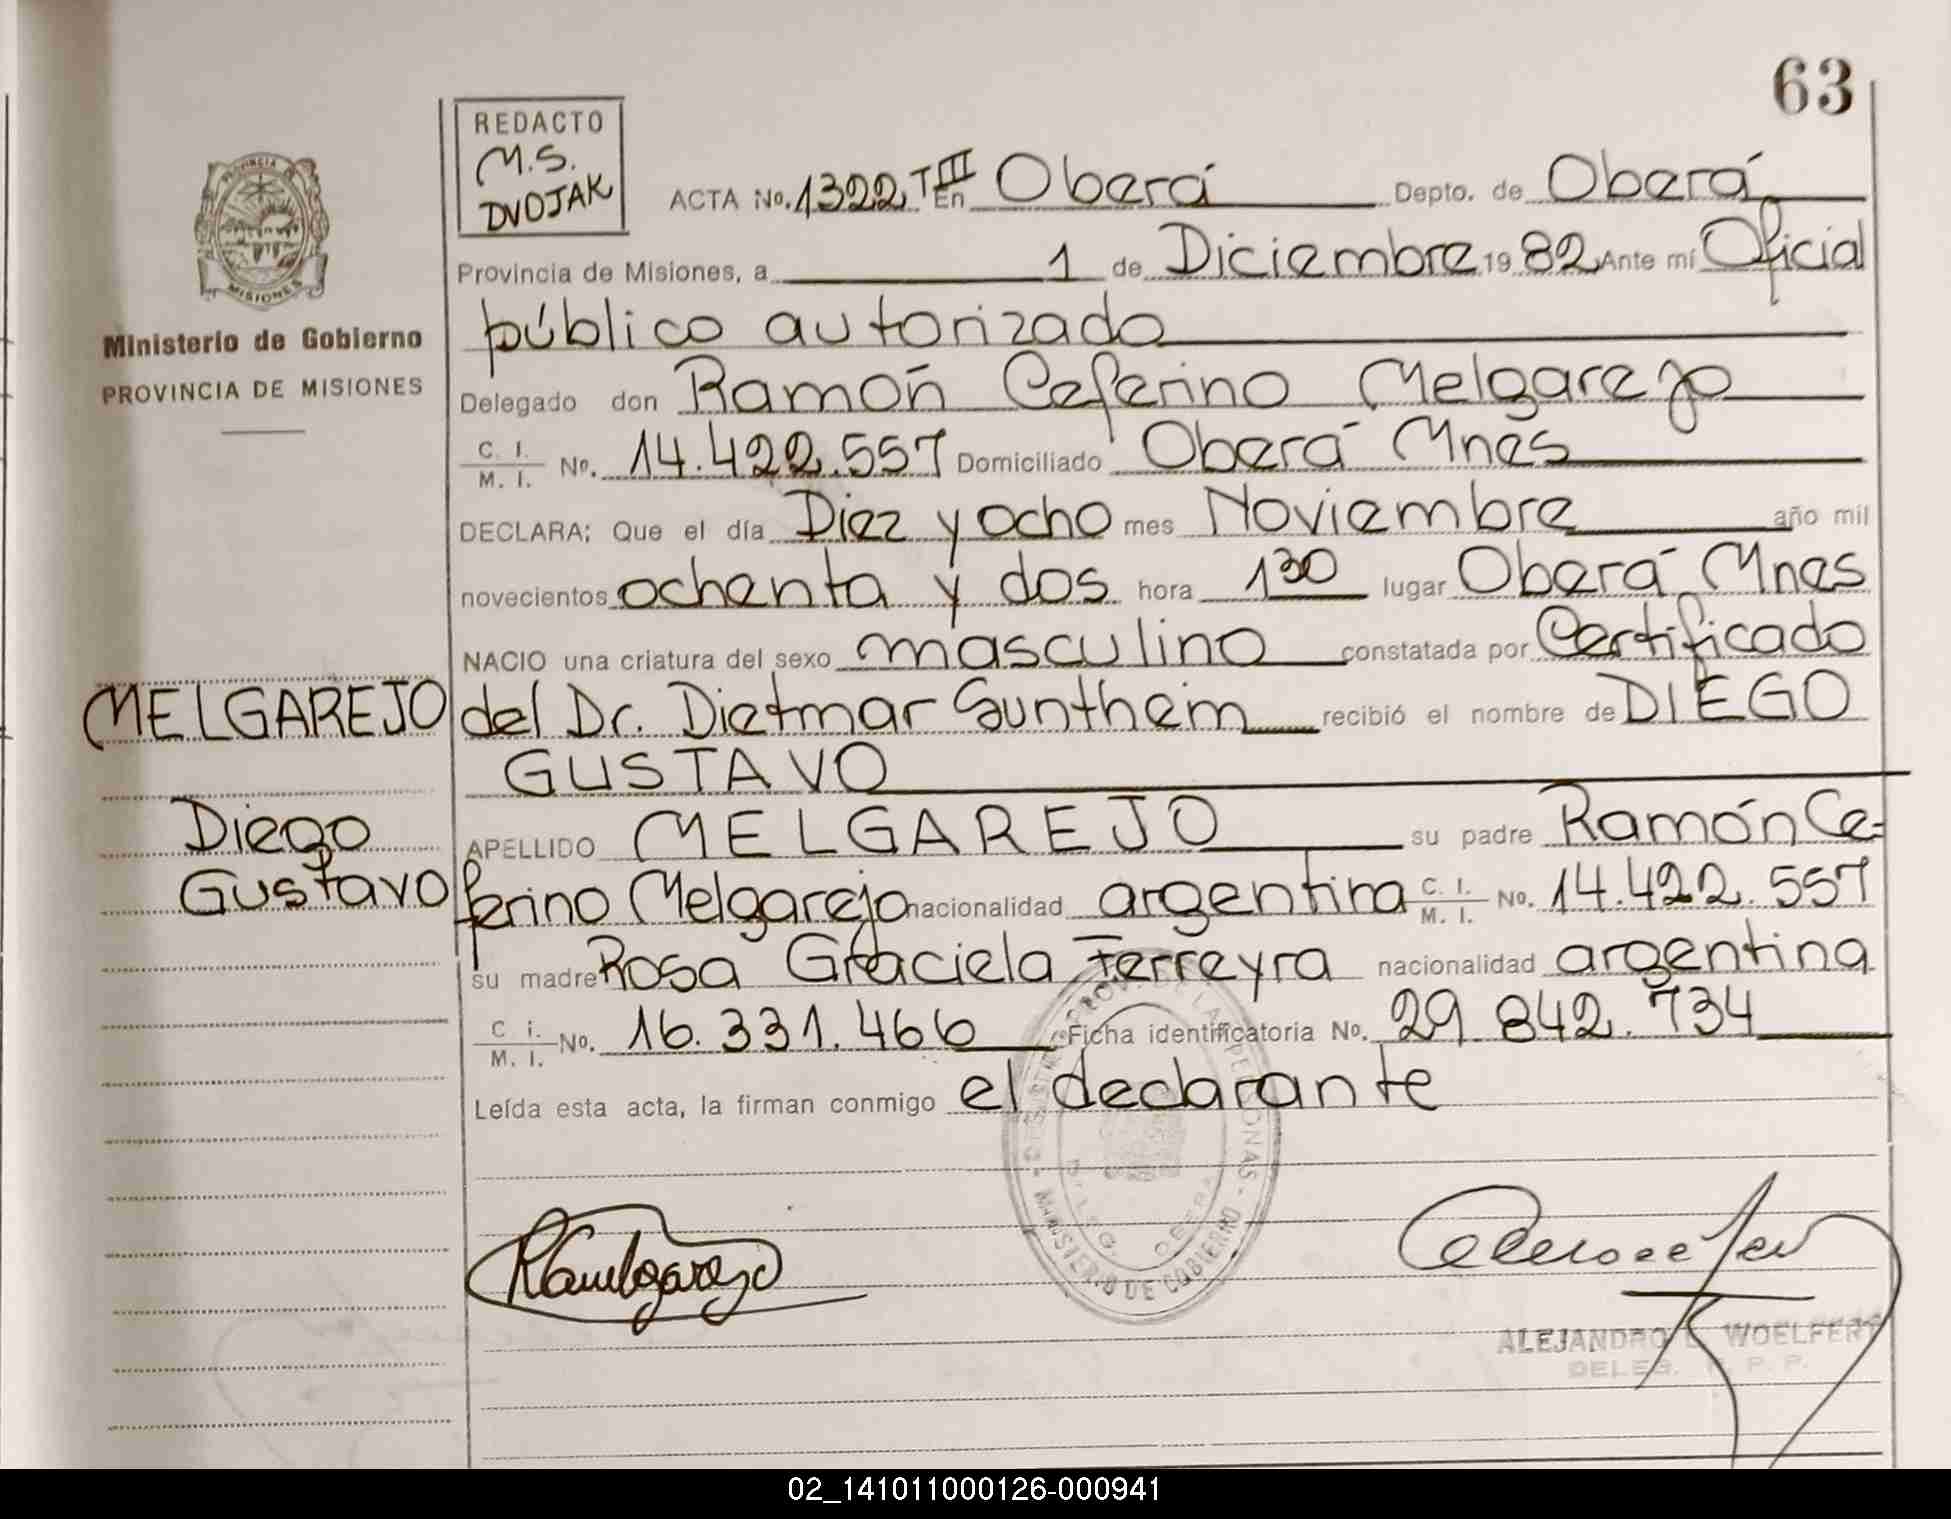 63
REDACTO
M.S.
DVOJAK
ACTA No. 1322 TIII En Oberá Depto. de Oberá
PROVINCIA DE
MISIONES
Provincia de Misiones, a 1 de Diciembre 1982 Ante mí Oficial
público autorizado
Ministerio de Gobierno
PROVINCIA DE MISIONES
Delegado don Ramón Ceferino Melgarejo
C. I. / M. I. No. 14.422.557 Domiciliado Oberá Mnes
DECLARA; Que el día Diez y ocho mes Noviembre año mil
novecientos ochenta y dos hora 1 30 lugar Oberá Mnes
NACIO una criatura del sexo masculino constatada por Certificado
MELGAREJO
del Dr. Dietmar Suntheim recibió el nombre de DIEGO
GUSTAVO
Diego
Gustavo
APELLIDO MELGAREJO su padre Ramón Ce-
ferino Melgarejo nacionalidad argentina C. I. / M. I. No. 14.422.557
su madre Rosa Graciela Ferreyra nacionalidad argentina
C i. / M. I. No. 16.331.466 Ficha identificatoria No. 29.842.734
Leída esta acta, la firman conmigo el declarante
DE LAS PERSONAS - MINISTERIO DE GOBIERNO
OBERA
ALEJANDRO WOELFERT
DELEG. P. P.
02_141011000126-000941